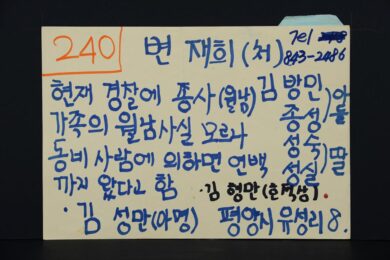 240
변 재희 (처)
Tel
843-2486
현재 경찰에 종사(월남) 김 방민
가족의 월남사실 모르나 종성 아들
동네 사람에 의하면 연백 성숙
까지 왔다고 함 성실 딸
· 김 형만(호적상).
· 김 성만(아명) 평양시 유성리 8.